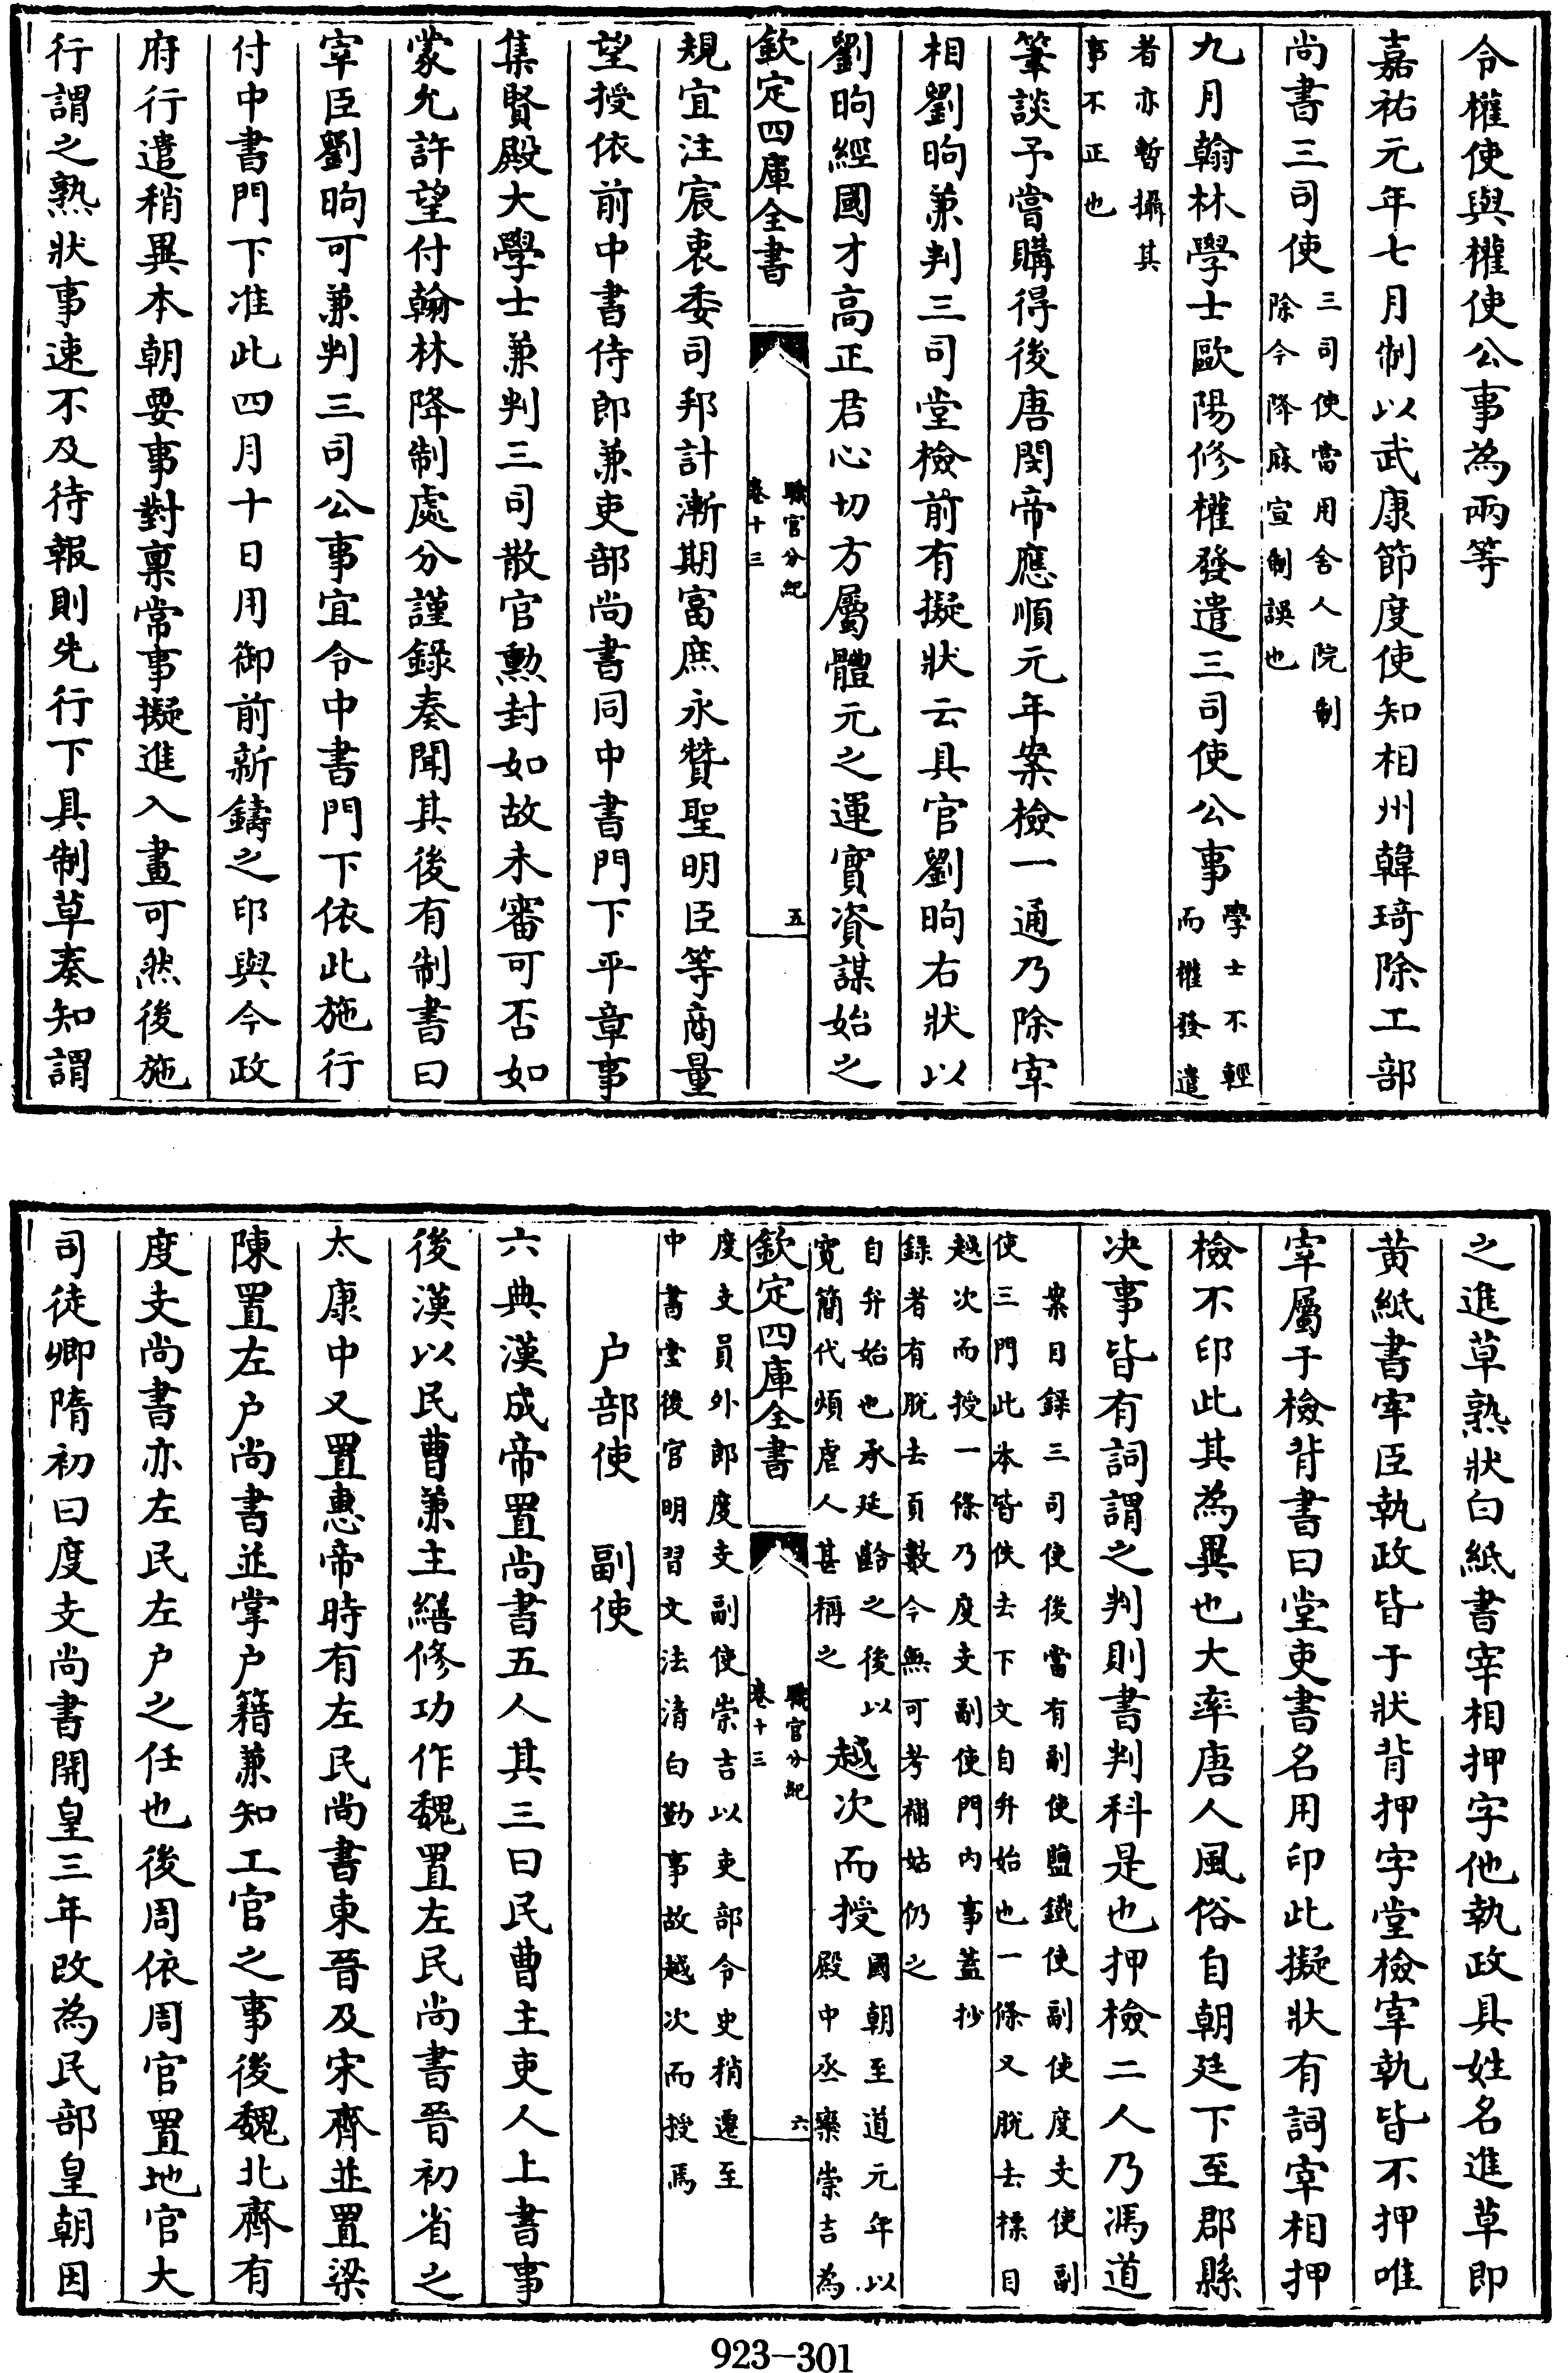 令權使與權使公事為兩等
嘉祐元年七月制以武康節度使知相州韓琦除工部
尚書三司使三司使當用舍人院制
除今降麻宣制誤也
九月翰林學士歐陽修權發遣三司使公事學士不輕
而權發遣
者亦暫攝其
事不正也
筆談予嘗購得後唐閔帝應順元年案檢一通乃除宰
相劉昫兼判三司堂檢前有擬狀云具官劉昫右狀以
劉昫經國才高正君心切方屬體元之運實資謀始之
欽定四庫全書
職官分紀
卷十三
五
規宜注宸衷委司邦計漸期富庶永贊聖明臣等商量
望授依前中書侍郎兼吏部尚書同中書門下平章事
集賢殿大學士兼判三司散官勲封如故未審可否如
蒙允許望付翰林降制處分謹錄奏聞其後有制書曰
宰臣劉昫可兼判三司公事宜令中書門下依此施行
付中書門下准此四月十日用御前新鑄之印與今政
府行遣稍異本朝要事對稟常事擬進入畫可然後施
行謂之熟狀事速不及待報則先行下具制草奏知謂
之進草熟狀白紙書宰相押字他執政具姓名進草即
黄紙書宰臣執政皆于狀背押字堂檢宰執皆不押唯
宰屬于檢背書日堂吏書名用印此擬狀有詞宰相押
檢不印此其為異也大率唐人風俗自朝廷下至郡縣
决事皆有詞謂之判則書判科是也押檢二人乃馮道
案目録三司使後當有副使鹽鐵使副使度支使副
使三門此本皆佚去下文自升始也一條又脫去標目
越次而授一條乃度支副使門内事蓋抄
録者有脫去頁數今無可考補姑仍之
自升始也承廷齡之後以
寛簡代煩虐人甚稱之
越次而授國朝至道元年以
殿中丞欒崇吉為
欽定四庫全書
職官分紀
卷十三
六
度支員外郎度支副使崇吉以吏部令史稍遷至
中書堂後官明習文法清白勤事故越次而授焉
户部使　副使
六典漢成帝置尚書五人其三曰民曹主吏人上書事
後漢以民曹兼主繕修功作魏置左民尚書晉初省之
太康中又置惠帝時有左民尚書東晉及宋齊並置梁
陳置左户尚書並掌户籍兼知工官之事後魏北齊有
度支尚書亦左民左户之任也後周依周官置地官大
司徒卿隋初曰度支尚書開皇三年改為民部皇朝因
923-301